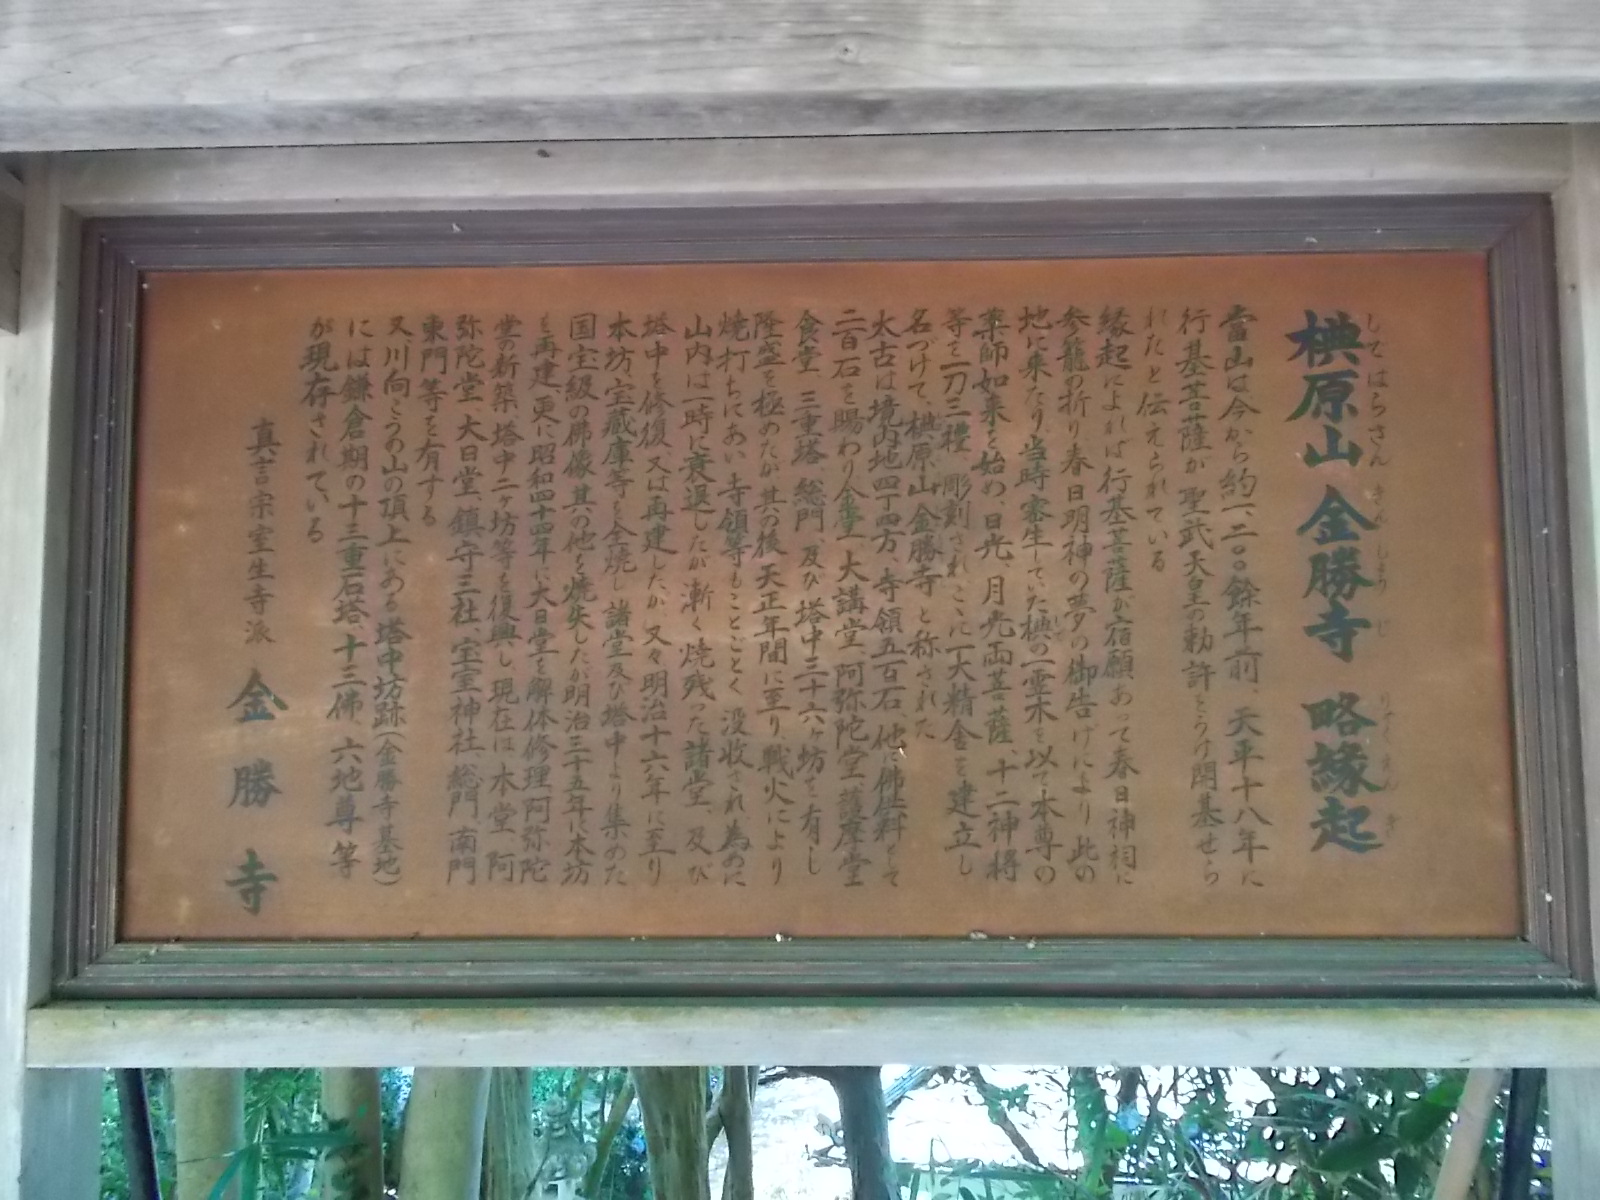 樻原山 金勝寺 略縁起
してはらさん きんしょうじ りゃくえんぎ
當山は今から約一、二〇〇餘年前、天平十八年に
行基菩薩が聖武天皇の勅許をうけ開基せら
れたと伝えられている
縁起によれば行基菩薩が宿願あって春日神祠に
参籠の折り、春日明神の夢の御告げにより此の
地に来たり当時寄生していた樻の一霊木を以て本尊の
薬師如来を始め、日光、月光両菩薩、十二神将
等を一刀三禮、彫刻されこゝに一大精舎を建立し
名づけて、樻原山金勝寺と称された
太古は境内地四丁四方、寺領五百石、他に佛供料として
二百石を賜わり金堂、大講堂、阿弥陀堂、護摩堂
食堂、三重塔、総門、及び塔中三十六ヶ坊を有し
隆盛を極めたが其の後天正年間に至り、戦火により
焼打ちにあい寺領等もことごとく没收され為めに
山内は一時に衰退したが漸く焼残った諸堂、及び
塔中を修復、又は再建したが、又々明治十六年に至り
本坊、宝蔵庫等を全焼し諸堂及び塔中より集めた
国宝級の佛像其の他を焼失したが明治三十五年に本坊
を再建、更に昭和四十四年に大日堂を解体修理阿弥陀
堂の新築、塔中二ヶ坊等を復興し、現在は、本堂、阿
弥陀堂、大日堂、鎮守三社、宝室神社、総門、南門
東門等を有する
又、川向こうの山の頂上にある塔中坊跡(金勝寺墓地)
には鎌倉期の十三重石塔、十三佛、六地尊等
が現存されている
真言宗室生寺派 金勝寺